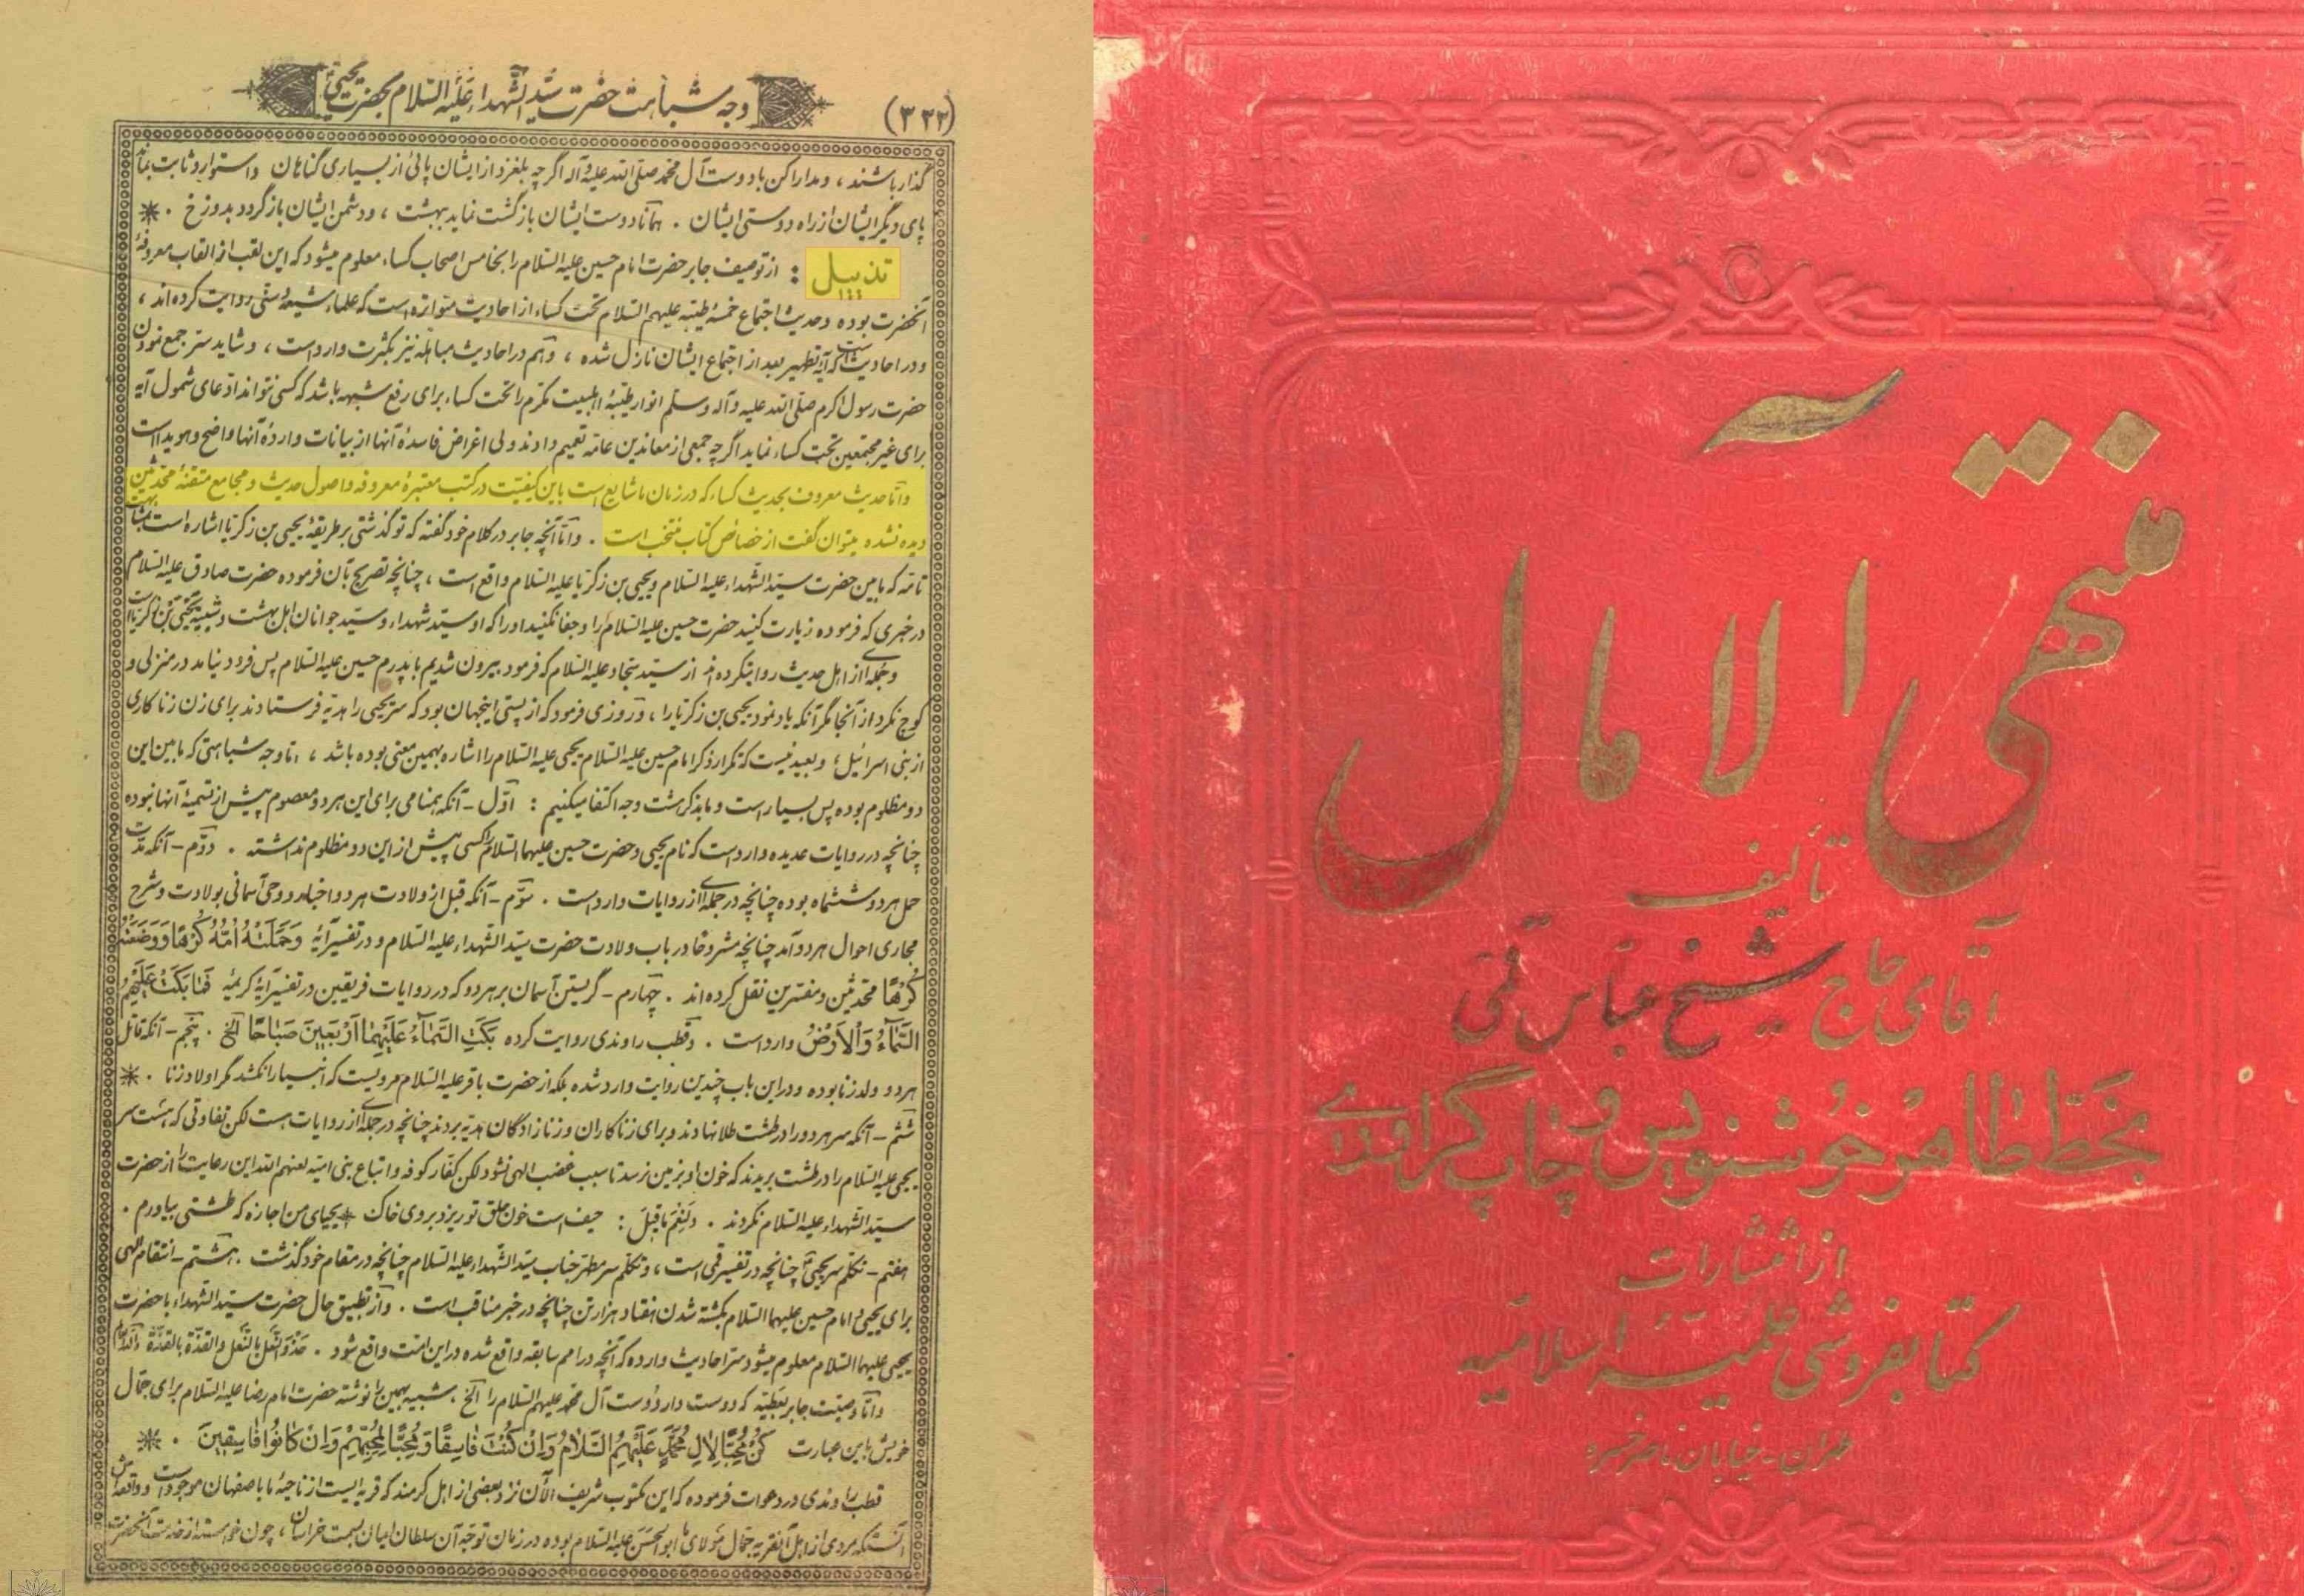 (۳۲۲)
وجه شباهت حضرت سیّد الشّهداء علیه السّلام بحضرت یحیی
گذار باشند ، و مدارا کن با دوست آل محمّد صلّی الله علیه و آله اگر چه بلغزد از ایشان پائی از بسیاری گناهان و استوار و ثابت بماند
پای دیگر ایشان از راه دوستی ایشان . همانا دوست ایشان بازگشت نماید ببهشت ، و دشمن ایشان باز گردد بدوزخ . *
تذییل : از توصیف جابر حضرت امام حسین علیه السّلام را بخامس اصحاب کساء معلوم میشود که این لقب از القاب معروفهٔ
آنحضرت بوده و حدیث اجتماع خمسهٔ طیّبه علیهم السّلام تحت کساء از احادیث متواتره است که علماء شیعه و سنّی روایت کرده‌اند ،
و در احادیث است که آیهٔ تطهیر بعد از اجتماع ایشان نازل شده ، و آنهم در احادیث مباهله نیز بکثرت وارد است ، و شاید سرّ جمع نمودن
حضرت رسول اکرم صلّی الله علیه و آله و سلّم انوار طیّبهٔ اهلبیت مکرّم را تحت کساء برای رفع شبهه باشد که کسی نتواند ادّعای شمول آیه
برای غیر مجتمعین تحت کساء نماید اگر چه جمعی از معاندین عامّه تعمیم دادند ولی اغراض فاسدهٔ آنها از بیانات واردهٔ آنها واضح و هویدا است
و امّا حدیث معروف بحدیث کساء که در زمان ما شایع است باین کیفیّت در کتب معتبرهٔ معروفه و اصول حدیث و مجامع متقنهٔ محدّثین
دیده نشده میتوان گفت از خصائص کتاب منتخب است . و امّا آنچه جابر در کلام خود گفته که تو گذشتی بر طریقهٔ یحیی بن زکریّا اشاره است بمشابهت
تامّه که ما بین حضرت سیّد الشّهداء علیه السّلام و یحیی بن زکریّا علیه السّلام واقع است ، چنانچه تصریح بآن فرموده حضرت صادق علیه السّلام
در خبری که فرموده زیارت کنید حضرت حسین علیه السّلام را و جفا نکنید او را که او سیّد شهداء و سیّد جوانان اهل بهشت و شبیه یحیی بن زکریّا است
و جمله‌ای از اهل حدیث روایتکرده‌اند از سیّد سجّاد علیه السّلام که فرمود بیرون شدیم با پدرم حسین علیه السّلام پس فرود نیامد در منزلی و
کوچ نکرد از آنجا مگر آنکه یاد نمود یحیی بن زکریّا را ، و روزی فرمود که از پستی اینجهان بود که سر یحیی را هدیّه فرستادند برای زن زناکاری
از بنی اسرائیل ؛ و بعید نیست که تکرار ذکر امام حسین علیه السّلام یحیی علیه السّلام را اشاره بهمین معنی بوده باشد ، امّا وجه شباهتی که ما بین این
دو مظلوم بوده پس بسیار است و ما بذکر هشت وجه اکتفا میکنیم : اوّل - آنکه همنامی برای این هر دو معصوم پیش از تسمیهٔ آنها نبوده
چنانچه در روایات عدیده وارد است که نام یحیی و حضرت حسین علیهما السّلام را کسی پیش از این دو مظلوم نداشته . دوّم - آنکه مدّت
حمل هر دو ششماه بوده چنانچه در جمله‌ای از روایات وارد است . سوّم - آنکه قبل از ولادت هر دو اخبار و وحی آسمانی بولادت و شرح
مجاری احوال هر دو آمد چنانچه مشروحا در باب ولادت حضرت سیّد الشّهداء علیه السّلام و در تفسیر آیهٔ وَحَمَلَتْهُ اُمُّهُ کُرْهًا وَوَضَعَتْهُ
کُرْهًا محدّثین و مفسّرین نقل کرده‌اند . چهارم - گریستن آسمان بر هر دو که در روایات فریقین در تفسیر آیهٔ کریمهٔ فَمَا بَکَتْ عَلَیْهِمُ
السَّمَاءُ وَالْاَرْضُ وارد است . و قطب راوندی روایت کرده بَکَتِ السَّمَاءُ عَلَیْهِمَا اَرْبَعِینَ صَبَاحًا الخ . پنجم - آنکه قاتل
هر دو ولد زنا بوده و در این باب چندین روایت وارد شده بلکه از حضرت باقر علیه السّلام مرویست که انبیاء را نکشد مگر اولاد زنا . *
ششم - آنکه سر هر دو را در طشت طلا نهادند و برای زناکاران و زنازادگان هدیّه بردند چنانچه در جمله‌ای از روایات است لکن تفاوتی که هست سر
یحیی علیه السّلام را در طشت بریدند که خون او بزمین نرسد تا سبب غضب الهی نشود لکن کفّار کوفه و اتباع بنی امیّه لعنهم الله این رعایت را از حضرت
سیّد الشّهداء علیه السّلام نکردند . وَلَنِعْمَ مَا قِیلَ : حیف است خون حلق تو ریزد بروی خاک * یحیای من اجازه که طشتی بیاورم .
هفتم - تکلّم سر یحیی چنانچه در تفسیر قمی است ، و تکلّم سر مطهّر جناب سیّد الشّهداء علیه السّلام چنانچه در مقام خود گذشت . هشتم - انتقام الهی
برای یحیی و امام حسین علیهما السّلام بکشته شدن هفتاد هزار تن چنانچه در خبر مناقب است . و از تطبیق حال حضرت سیّد الشّهداء با حضرت
یحیی علیهما السّلام معلوم میشود سرّ احادیث وارده که آنچه در امم سابقه واقع شده در این امّت واقع شود . حَذْوَ النَّعْلِ بِالنَّعْلِ وَالقُذَّةِ بِالقُذَّةِ
و امّا وصیّت جابر بعطیّه که دوست دار دوست آل محمّد علیهم السّلام را الخ ، شبیه بهمین را نوشته حضرت امام رضا علیه السّلام برای جمّال
خویش باین عبارت کُنْ مُحِبًّا لِاٰلِ مُحَمَّدٍ عَلَیْهِمُ السَّلَامُ وَاِنْ کُنْتَ فَاسِقًا وَمُحِبًّا لِمُحِبِّیهِمْ وَاِنْ کَانُوا فَاسِقِینَ . *
قطب راوندی در دعوات فرموده که این مکتوب شریف الآن نزد بعضی از اهل کرمند که قریه ایست از ناحیهٔ ما باصفهان موجود است و واقعه‌اش
آنستکه مردی از اهل آنقریه جمّال مولای ما ابو الحسن علیه السّلام بوده در زمان توجّه آن سلطان امیان بسمت خراسان ، چون خواسته از خدمت آنحضرت
منتهی الآمال
تألیف
آقای حاج شیخ عبّاس قمّی
بخطّ طاهر خوشنویس و چاپ گراوری
از انتشارات
کتابفروشی علمیّهٔ اسلامیّه
طهران - خیابان ناصر خسرو